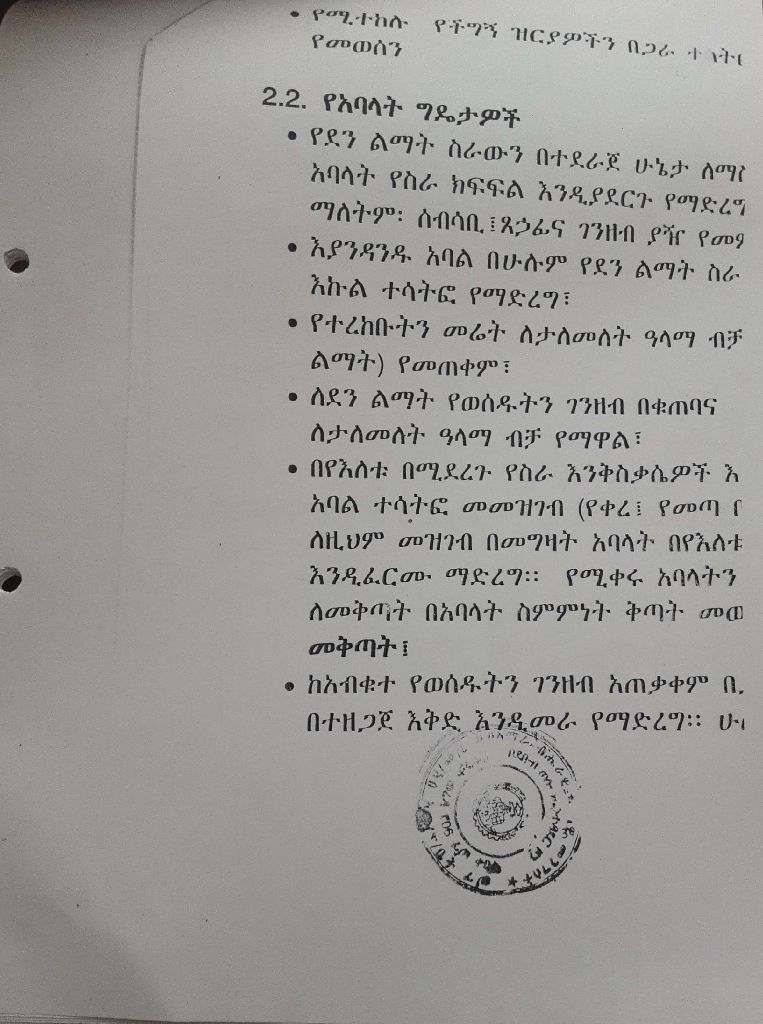 • የሚተከሉ የችግኝ ዝርያዎችን በጋራ
የመወሰን
2.2. የአባላት ግዴታዎች
• የደን ልማት ስራውን በተደራጀ ሁኔታ
አባላት የስራ ክፍፍል እንዲያደርጉ የማድረግ
ማለትም፡ ሰብሳቢ፤ጸኃፊና ገንዘብ ያዥ
• እያንዳንዱ አባል በሁሉም የደን ልማት ስራ
እኩል ተሳትፎ የማድረግ፣
• የተረከቡትን መሬት ለታለመለት ዓላማ ብቻ
ልማት) የመጠቀም፣
• ለደን ልማት የወሰዱትን ገንዘብ በቁጠባና
ለታለመለት ዓላማ ብቻ የማዋል፣
• በየእለቱ በሚደረጉ የስራ እንቅስቃሴዎች እ
አባል ተሳትፎ መመዝገብ (የቀረ፤ የመጣ
ለዚህም መዝገብ በመግዛት አባላት በየእለቱ
እንዲፈርሙ ማድረግ፡፡ የሚቀሩ አባላትን
ለመቅጣት በአባላት ስምምነት ቅጣት መወ
መቅጣት፤
• ከአብቁተ የወሰዱትን ገንዘብ አጠቃቀም
በተዘጋጀ እቅድ እንዲመራ የማድረግ፡፡